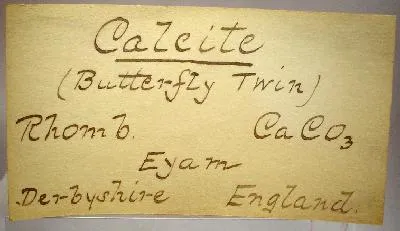 Calcite
(Butterfly Twin)
Rhomb. CaCO₃
Eyam
Derbyshire England.